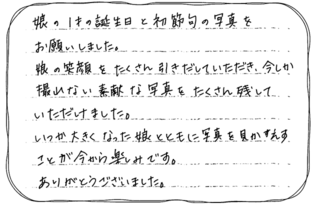 娘の1才の誕生日と初節句の写真を
お願いしました。
娘の笑顔をたくさん引きだしていただき、今しか
撮れない素敵な写真をたくさん残して
いただけました。
いつか大きくなった娘とともに写真を見かえす
ことが今から楽しみです。
ありがとうございました。